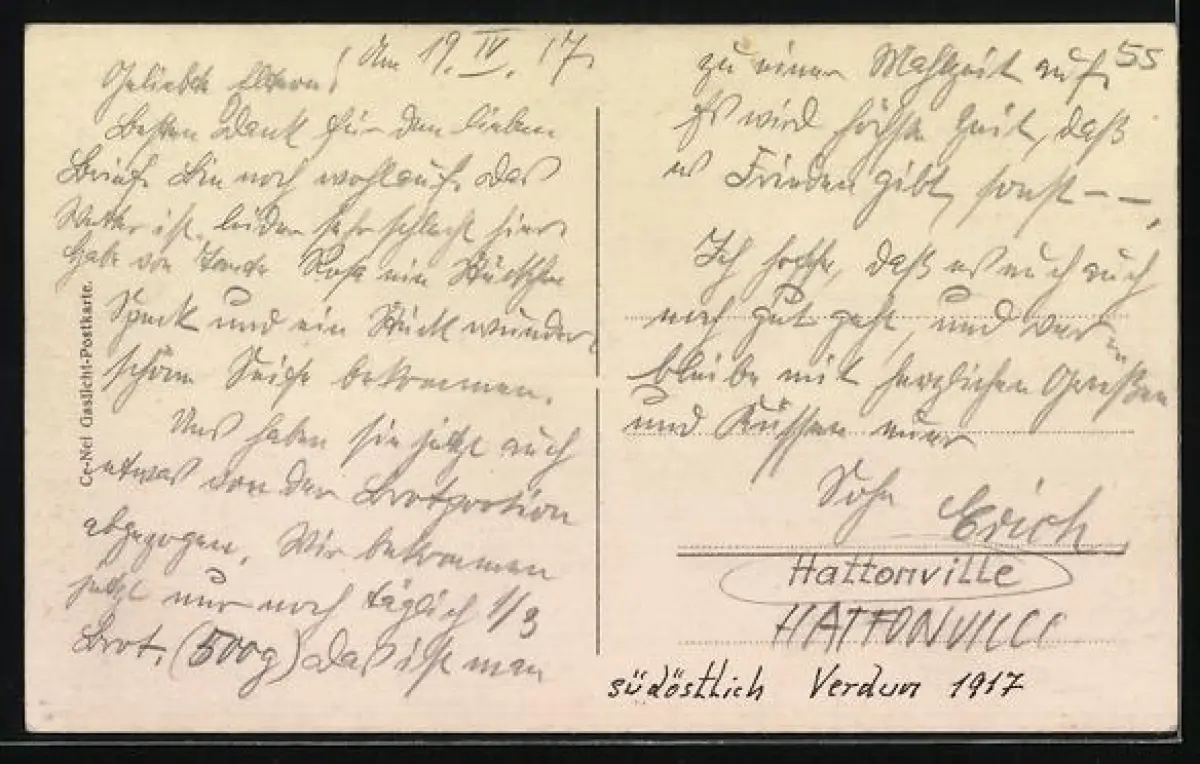 Am 19. IV. 17.
Geliebte Eltern!
Besten Dank für den lieben
Brief. Bin noch wohlauf. Das
Wetter ist leider sehr schlecht hier.
Habe von Tante Rosa ein Stückchen
Speck und ein Stück wunder-
schöne Seife bekommen.
Uns haben sie jetzt auch
etwas von der Brotportion
abgezogen. Wir bekommen
jetzt nur noch täglich 1/3
Brot. (500g) Das ißt man
Ce-Nel Gaslicht-Postkarte.
55
zu einer Mahlzeit auf.
Es wird höchste Zeit, daß
es Frieden gibt, sonst – –.
Ich hoffe, daß es euch auch
noch gut geht, und ver-
bleibe mit herzlichen Grüßen
und Küssen euer
Sohn Erich
Hattonville
HATTONVILLE
südöstlich Verdun 1917